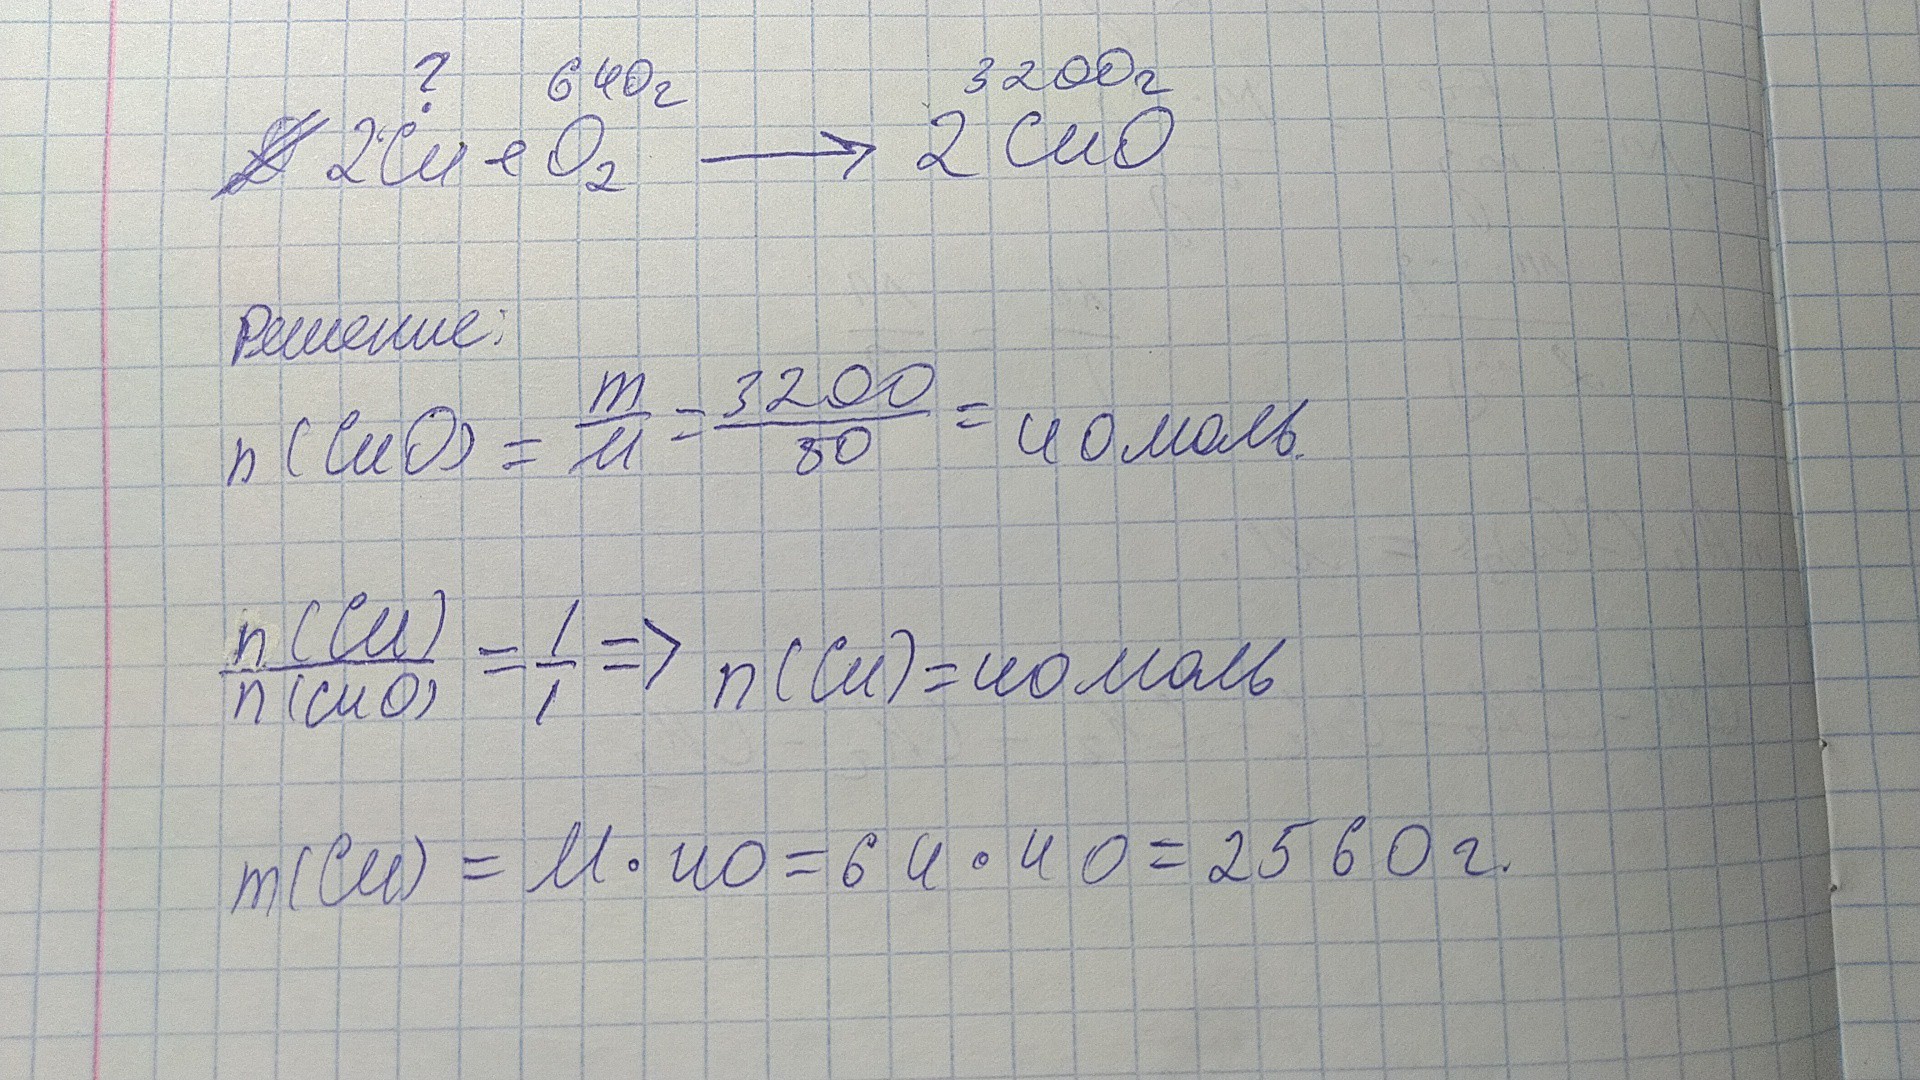 ? 640г 3200г
2Cu + O₂ → 2CuO
Решение:
n(CuO) = m/M = 3200/80 = 40моль.
n(Cu)/n(CuO) = 1/1 => n(Cu) = 40моль
m(Cu) = M • 40 = 64 • 40 = 2560г.